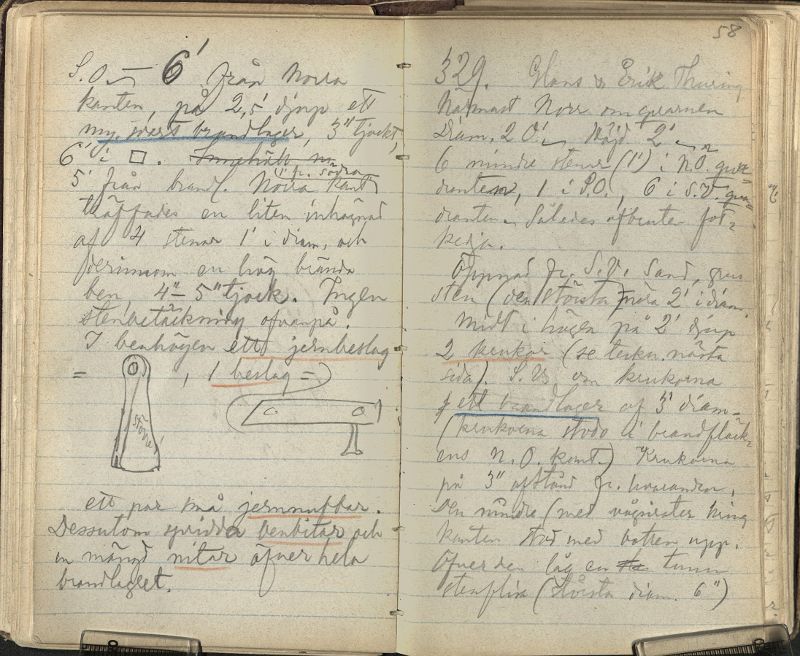 S.O. — 6' från Norra
kanten, på 2,5' djup ett
brandlager, 3" tjockt,
6' i □. Innehåll
fr. södra
5' från brandl. Norra kant
träffades en liten inhägnad
af 4 stenar 1' i diam, och
derinnom en hög brända
ben, 4"–5" tjock. Ingen
stenbetäckning ofvanpå.
I benhögen ett jernbeslag
= , 1 beslag =
ett par små jernnubbar.
Dessutom spridda benbitar och
en mängd nitar öfver hela
brandlagret.
58
329. Hans & Erik Thuring
Närmast Norr om qvarnen
Diam. 20'. Höjd 2'.
6 mindre stenar (1') i N.O. qva-
dranten, 1 i S.O., 6 i S.V. qva-
dranten. Således afbruten fot-
kedja.
Öppnad fr. S.V. Sand, grus
sten (den största nära 2' i diam.
Midt i högen på 2' djup
2 krukor (se teckn. nästa
sida). S.V. om krukorna
ett brandlager af 3' diam-
(krukorna stodo i brandfläck-
ens N.O. kant.) Krukorna
på 3" afstånd fr. hvarandra.
Den mindre (med vågsirater kring
kanten stod med botten upp.
Öfver den låg en tunn
stenflisa (största diam. 6")